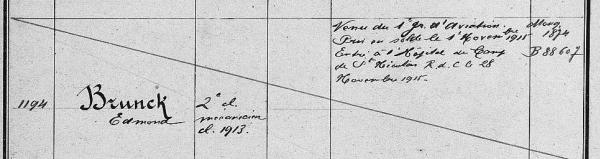 Venu du 1er Gr. d'Aviation.
Pris en solde le 1er Novembre 1915
Entré à l'Hôpital du Camp
de St Nicolas R.d.C le 28
Novembre 1915.
1874
B 88607
1194
Brunck
Edmond
2e cl.
mécanicien
cl. 1913.